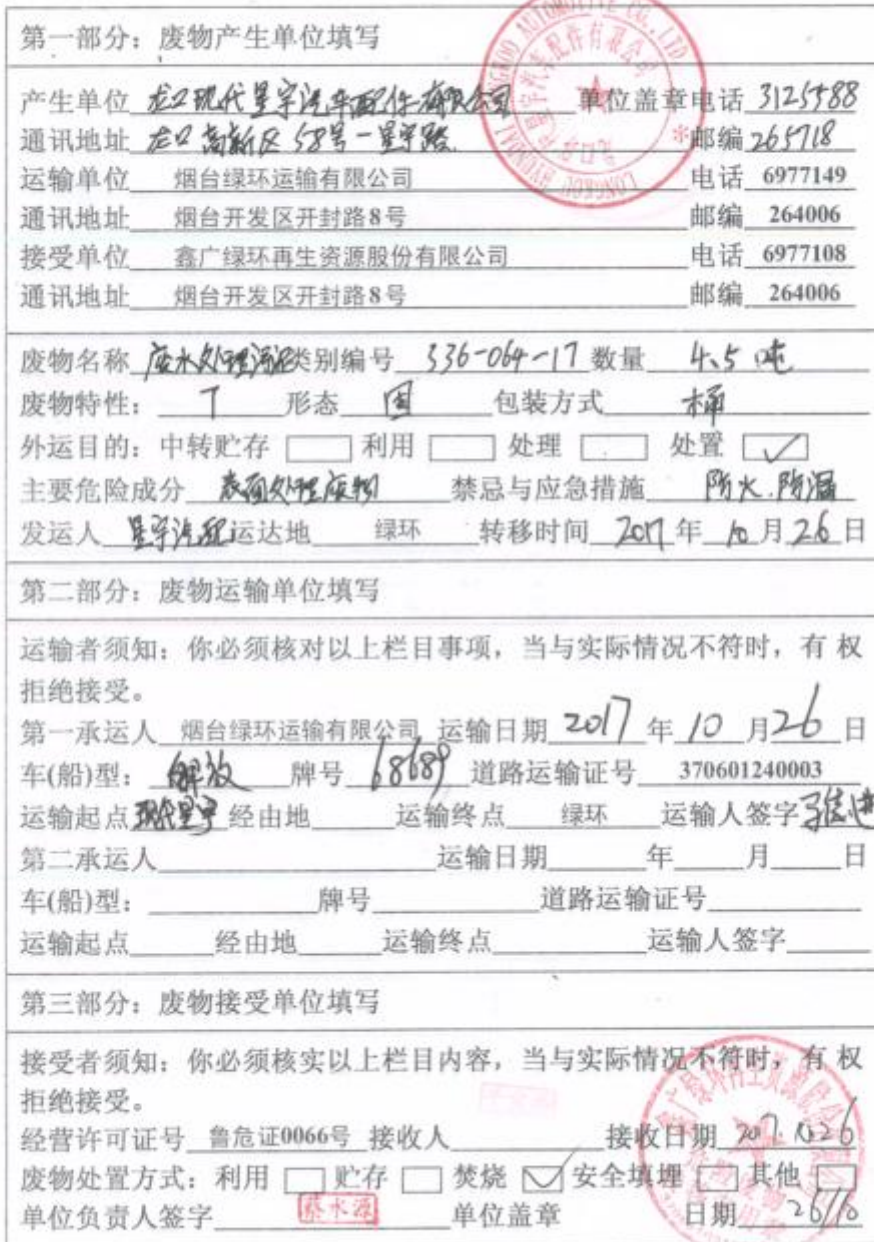 第一部分：废物产生单位填写
产生单位 龙口现代星宇汽车配件有限公司 单位盖章 电话 3125588
通讯地址 龙口高新区58号一星宇路 邮编 265718
运输单位 烟台绿环运输有限公司 电话 6977149
通讯地址 烟台开发区开封路8号 邮编 264006
接受单位 鑫广绿环再生资源股份有限公司 电话 6977108
通讯地址 烟台开发区开封路8号 邮编 264006
废物名称 废水处理污泥 类别编号 336-064-17 数量 4.5吨
废物特性： T 形态 固 包装方式 桶
外运目的：中转贮存 □ 利用 □ 处理 □ 处置 ☑
主要危险成分 表面处理废物 禁忌与应急措施 防火.防漏
发运人 星宇汽配 运达地 绿环 转移时间 2017 年 10 月 26 日
第二部分：废物运输单位填写
运输者须知：你必须核对以上栏目事项，当与实际情况不符时，有 权
拒绝接受。
第一承运人 烟台绿环运输有限公司 运输日期 2017 年 10 月 26 日
车(船)型： 解放 牌号 68689 道路运输证号 370601240003
运输起点 现代星宇 经由地 运输终点 绿环 运输人签字
第二承运人 运输日期 年 月 日
车(船)型： 牌号 道路运输证号
运输起点 经由地 运输终点 运输人签字
第三部分：废物接受单位填写
接受者须知：你必须核实以上栏目内容，当与实际情况不符时，有 权
拒绝接受。
经营许可证号 鲁危证0066号 接收人 接收日期 2017.10.26
废物处置方式：利用 □ 贮存 □ 焚烧 ☑ 安全填埋 □ 其他 □
单位负责人签字 蔡水源 单位盖章 日期 26/10